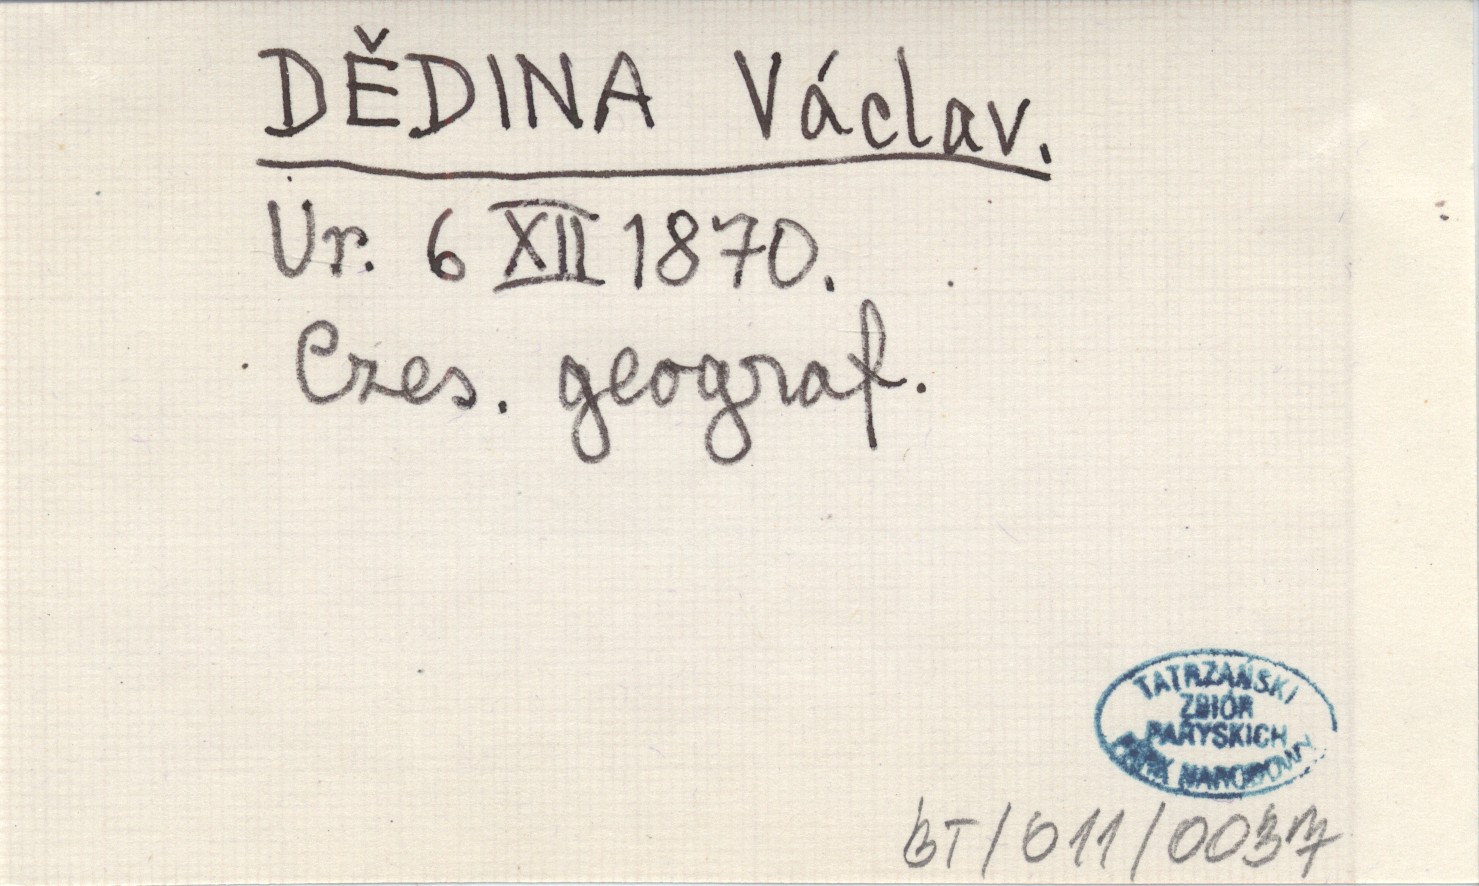 DĚDINA Václav.
Ur. 6 XII 1870.
Czes. geograf.
TATRZAŃSKI
ZBIÓR
PARYSKICH
PARK NARODOWY
BT/011/0037